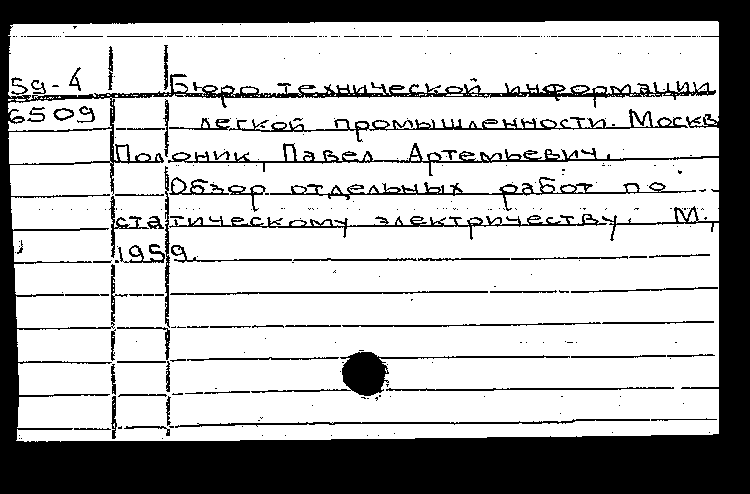 59-4 Бюро технической информации
6509 легкой промышленности. Москв
Полоник, Павел Артемьевич.
Обзор отдельных работ по
статическому электричеству. М.,
1959.